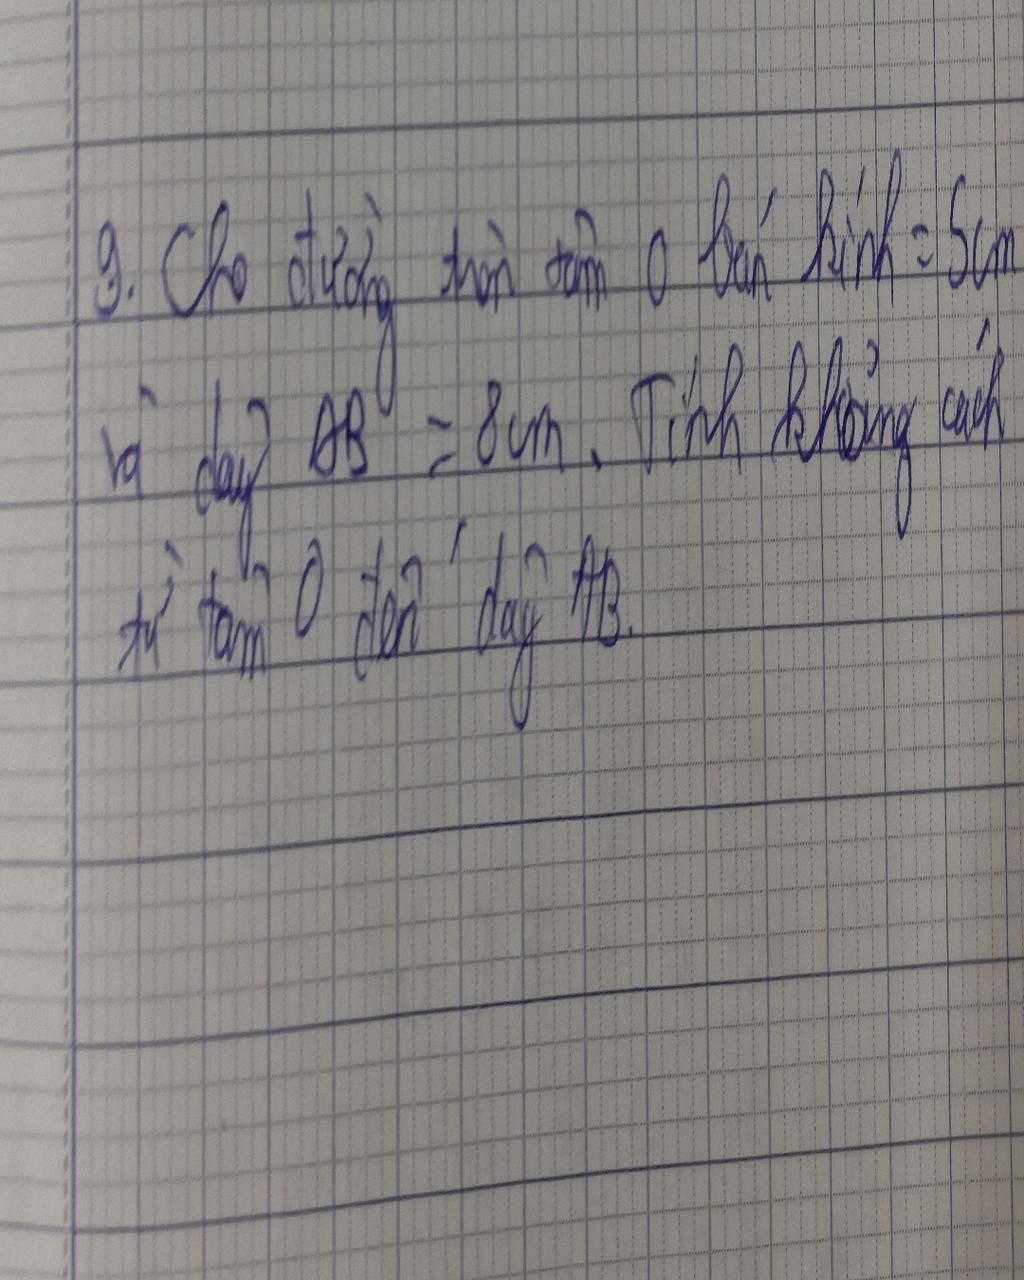 9. Cho đường tròn tâm O bán kính = 5cm
và dây AB = 8cm. Tính khoảng cách
từ tâm O đến dây AB.